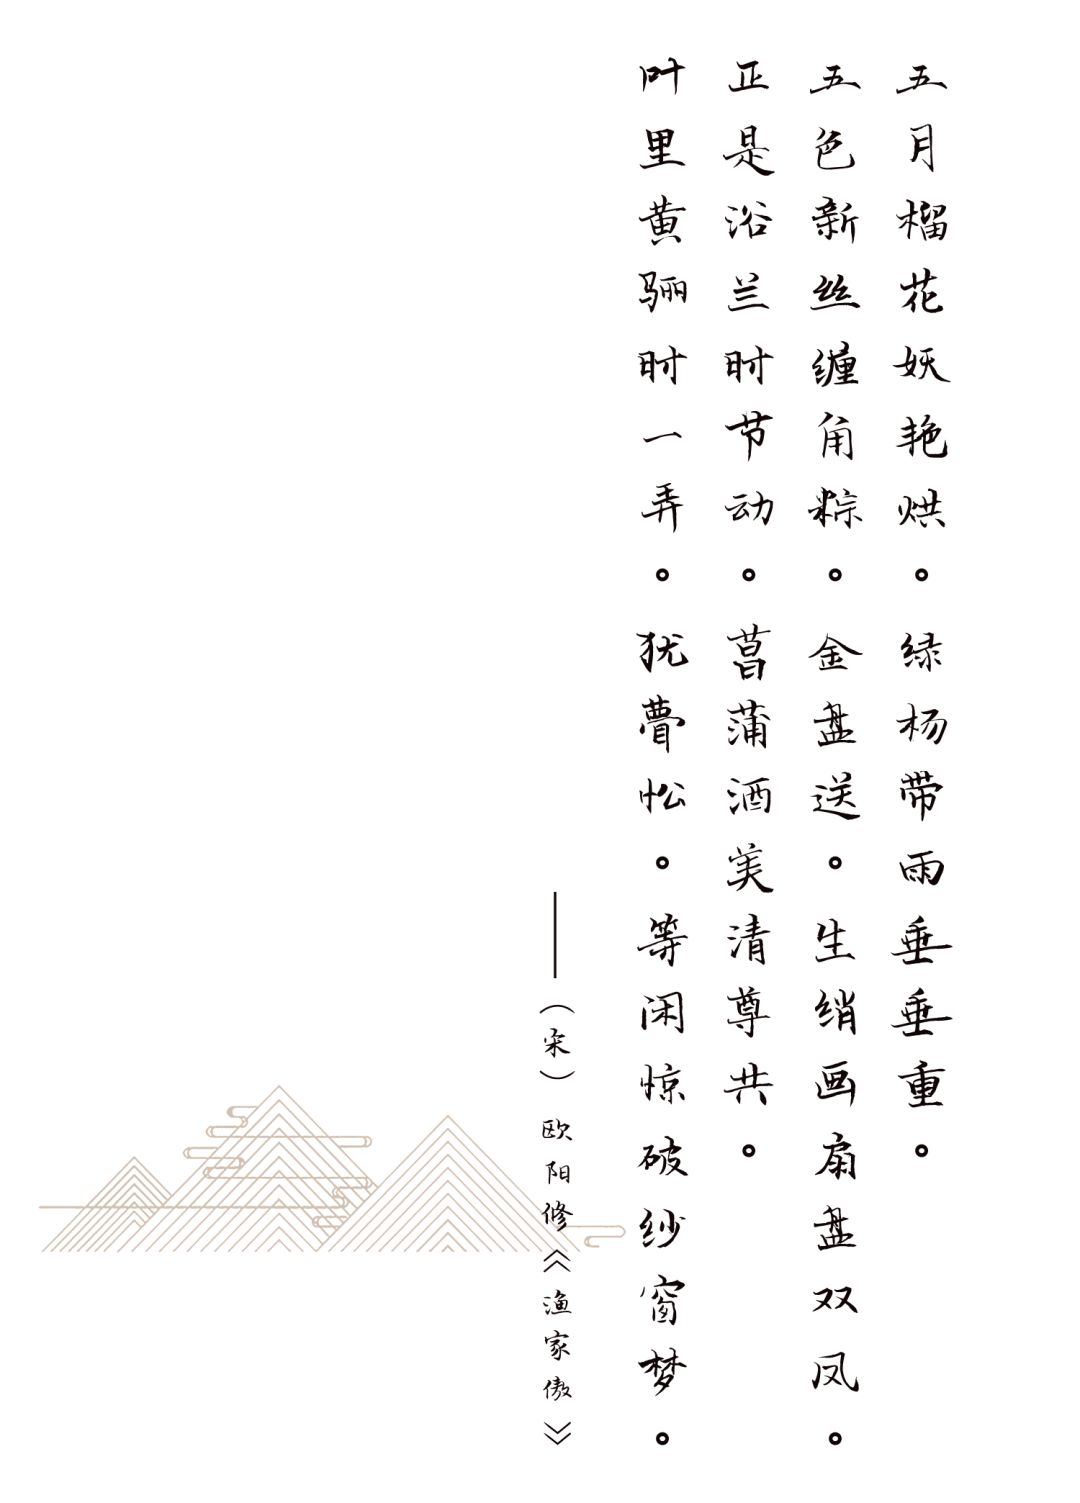 五月榴花妖艳烘。绿杨带雨垂垂重。
五色新丝缠角粽。金盘送。生绡画扇盘双凤。
正是浴兰时节动。菖蒲酒美清尊共。
叶里黄骊时一弄。犹瞢忪。等闲惊破纱窗梦。
——（宋）欧阳修《渔家傲》